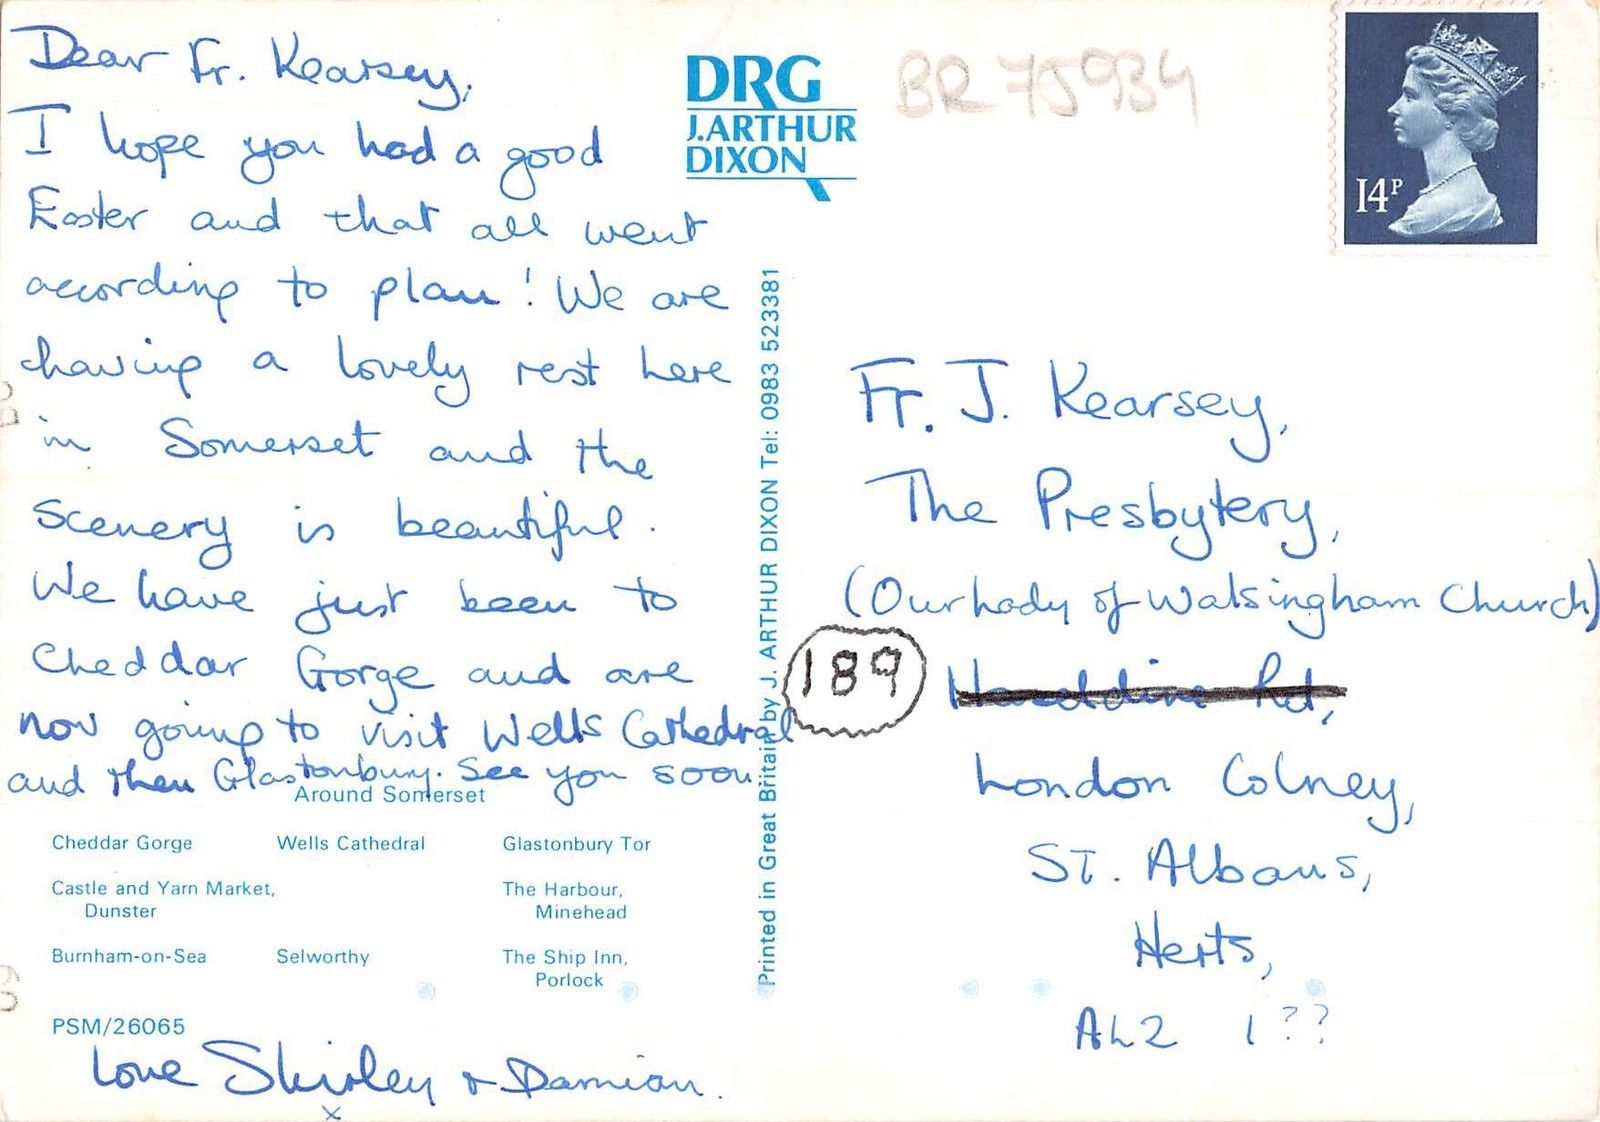 Dear Fr. Kearsey,
I hope you had a good
Easter and that all went
according to plan! We are
having a lovely rest here
in Somerset and the
scenery is beautiful.
We have just been to
Cheddar Gorge and are
now going to visit Wells Cathedral
and then Glastonbury. See you soon.
Around Somerset
Cheddar Gorge Wells Cathedral Glastonbury Tor
Castle and Yarn Market,
Dunster
The Harbour,
Minehead
Burnham-on-Sea Selworthy The Ship Inn,
Porlock
PSM/26065
Love Shirley & Damian.
x
DRG
J.ARTHUR
DIXON
Printed in Great Britain by J. ARTHUR DIXON Tel: 0983 523381
BR 75934
14P
Fr. J. Kearsey,
The Presbytery,
(Our Lady of Walsingham Church)
189
Rd,
London Colney,
St. Albans,
Herts,
AL2 1??